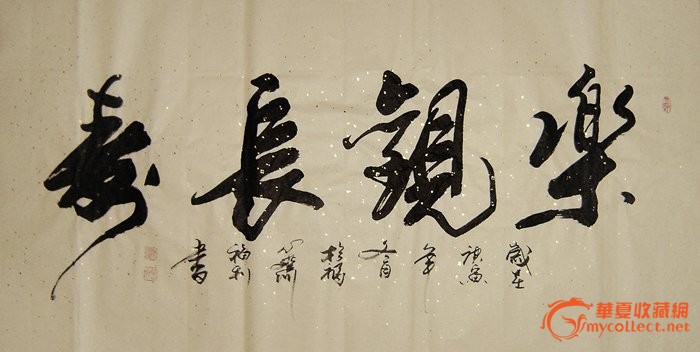 樂觀長壽
歲在庚寅年 心齋 福利書
華夏收藏網
mycollect.net